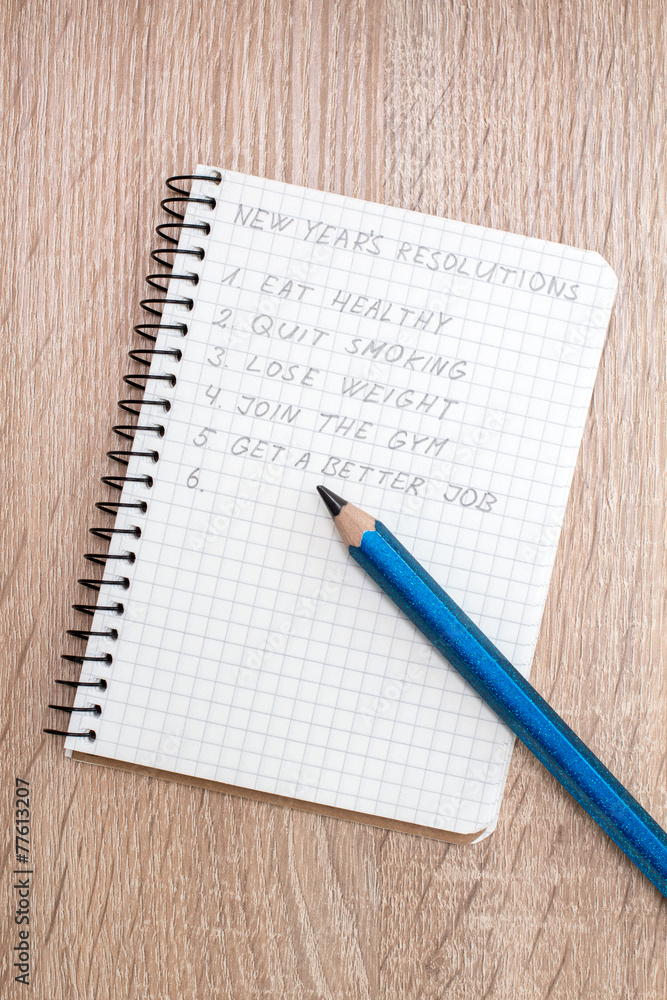 NEW YEAR'S RESOLUTIONS
1. EAT HEALTHY
2. QUIT SMOKING
3. LOSE WEIGHT
4. JOIN THE GYM
5 GET A BETTER JOB
6.
Adobe Stock | #77613207